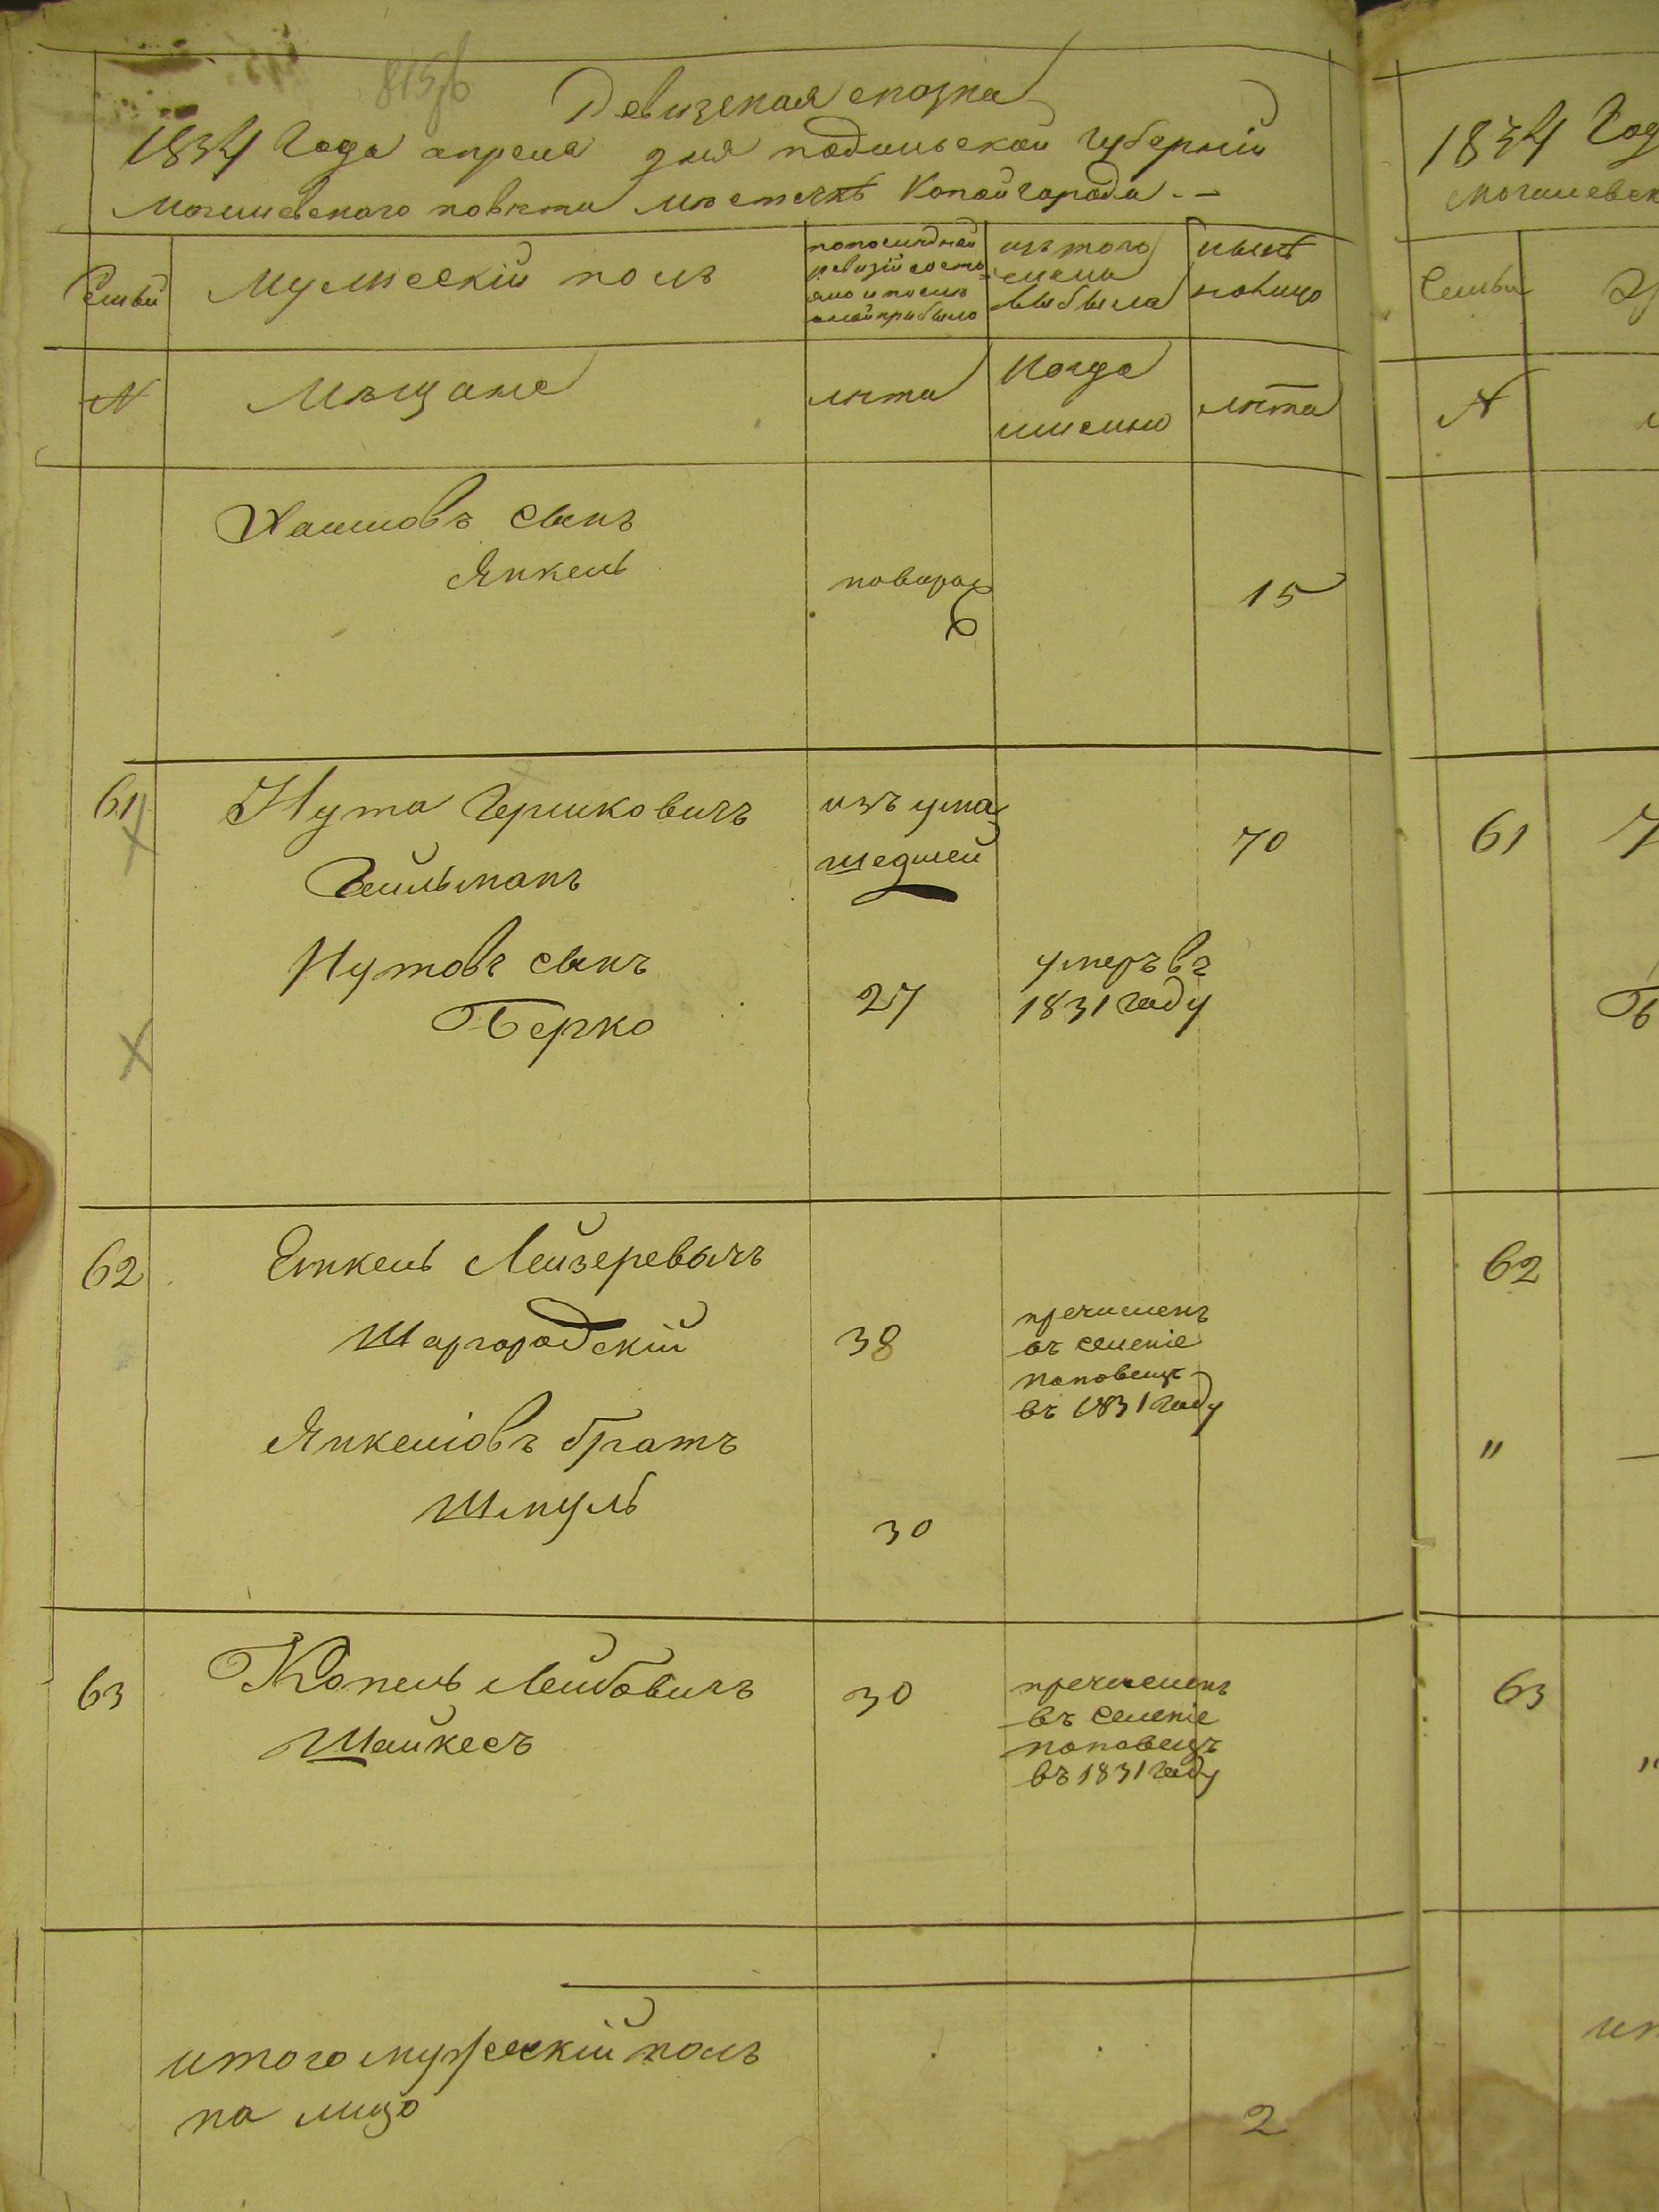 815б
Ревизская сказка
1834 Года апреля дня подольской Губерніи
могилевского повѣта местечкѣ Копайгорода. —
Семьи
Мужескій полъ
попоследней
ревизіи состо
яло и послѣ
оной прибыло
изъ того
числа
выбыло
нынѣ
налицо
N
Мѣщане
лѣта
Когда
имѣнно
лѣта
Хаимовъ сынъ
Янкель
новорож
15
61
Нута Гершковичъ
изъ ума
шедшей
70
Гейльманъ
Нутовъ сынъ
Берко
27
умеръ въ
1831 году
62
Янкель Лейзеревычъ
Шаргородскій
38
пречисленъ
въ селеніе
поповецъ
въ 1831 году
Янкеліовъ братъ
Шмуль
30
63
Копель Лейбовичъ
Шайкесъ
30
пречисленъ
въ селеніе
поповецъ
въ 1831 году
итого мужескій полъ
на лицо
2
1834 Год
могилевск
Семьи
N
61
62
"
63
"
ит